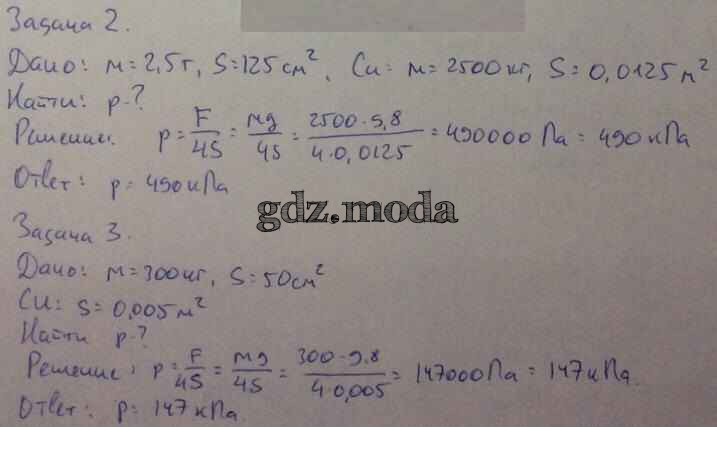 Задача 2.
Дано: m = 2,5т, S = 125 см², Си: m = 2500 кг, S = 0,0125 м²
Найти: p-?
Решение: p = F/4S = mg/4S = 2500·9,8/4·0,0125 = 490000 Па = 490 кПа
Ответ: p = 490 кПа
gdz.moda
Задача 3.
Дано: m = 300 кг, S = 50 см²
Си: S = 0,005 м²
Найти p-?
Решение: p = F/4S = mg/4S = 300·9,8/4·0,005 = 147000 Па = 147 кПа
Ответ: p = 147 кПа.